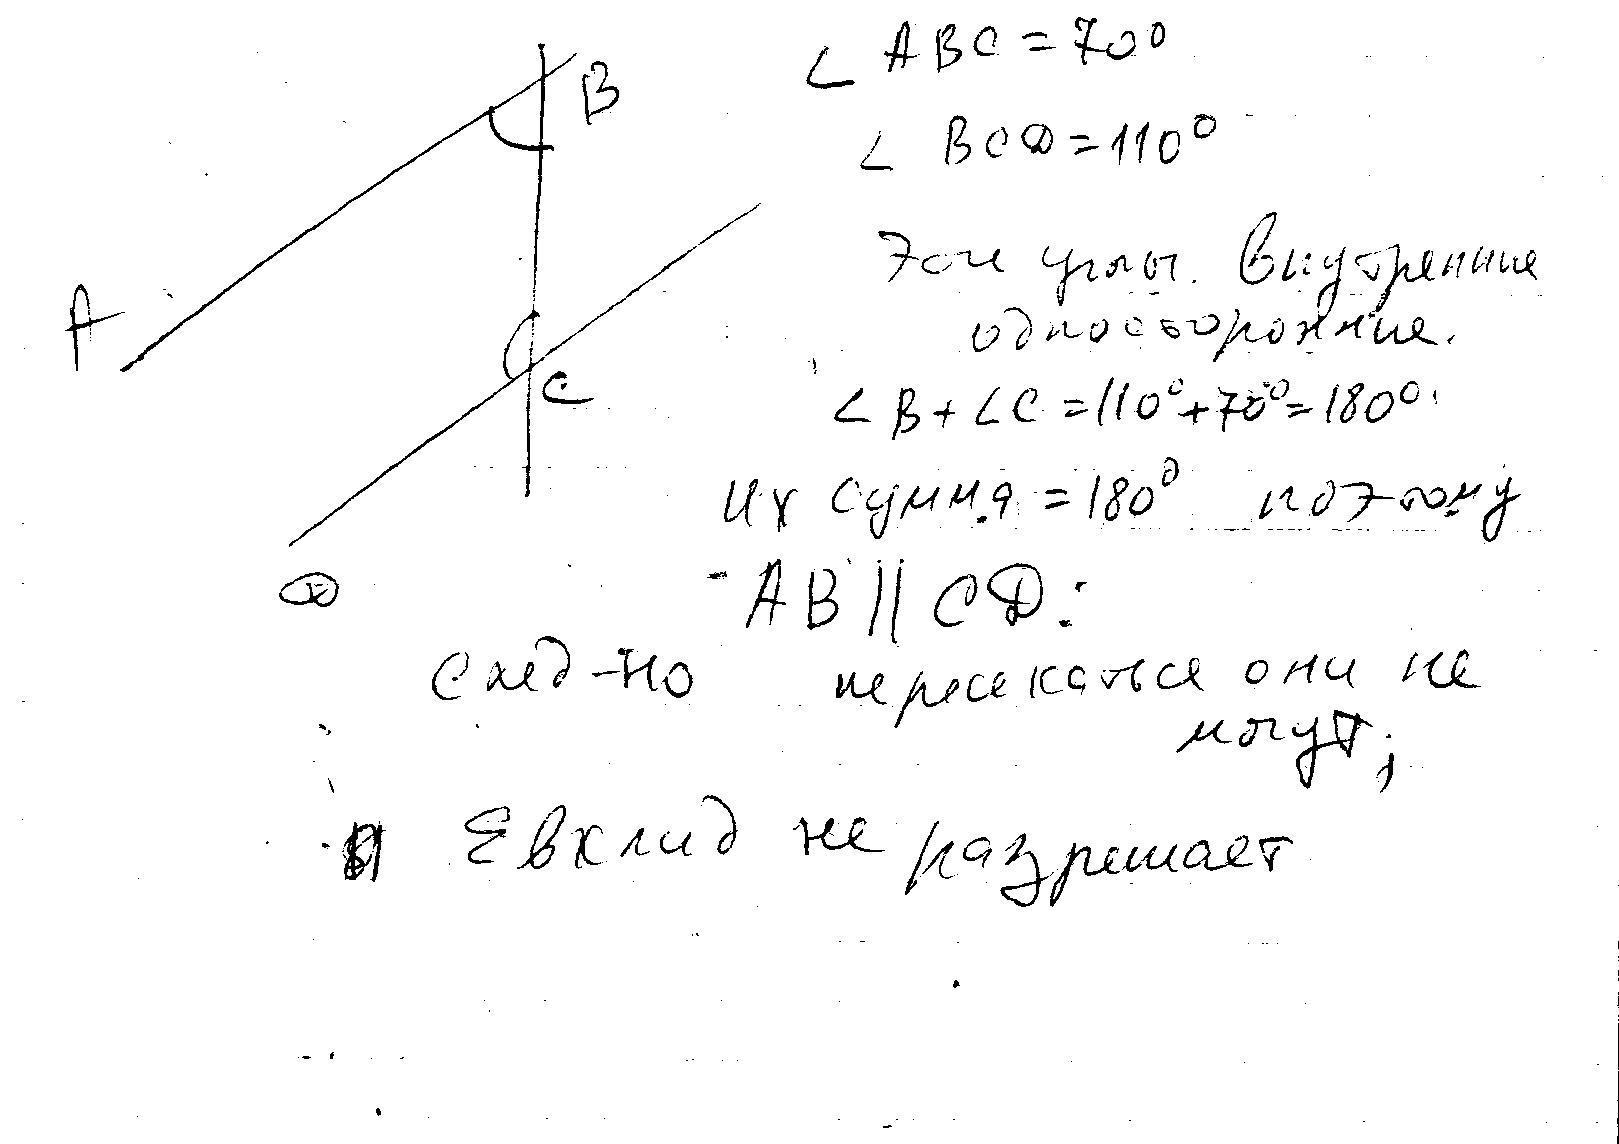 B
A
C
D
∠ ABC = 70°
∠ BCD = 110°
Эти углы. Внутренние
односторонние.
∠ B + ∠ C = 110° + 70° = 180°
Их сумма = 180° поэтому
AB || CD:
След-но пересекаться они не
могут;
Евклид не разрешает